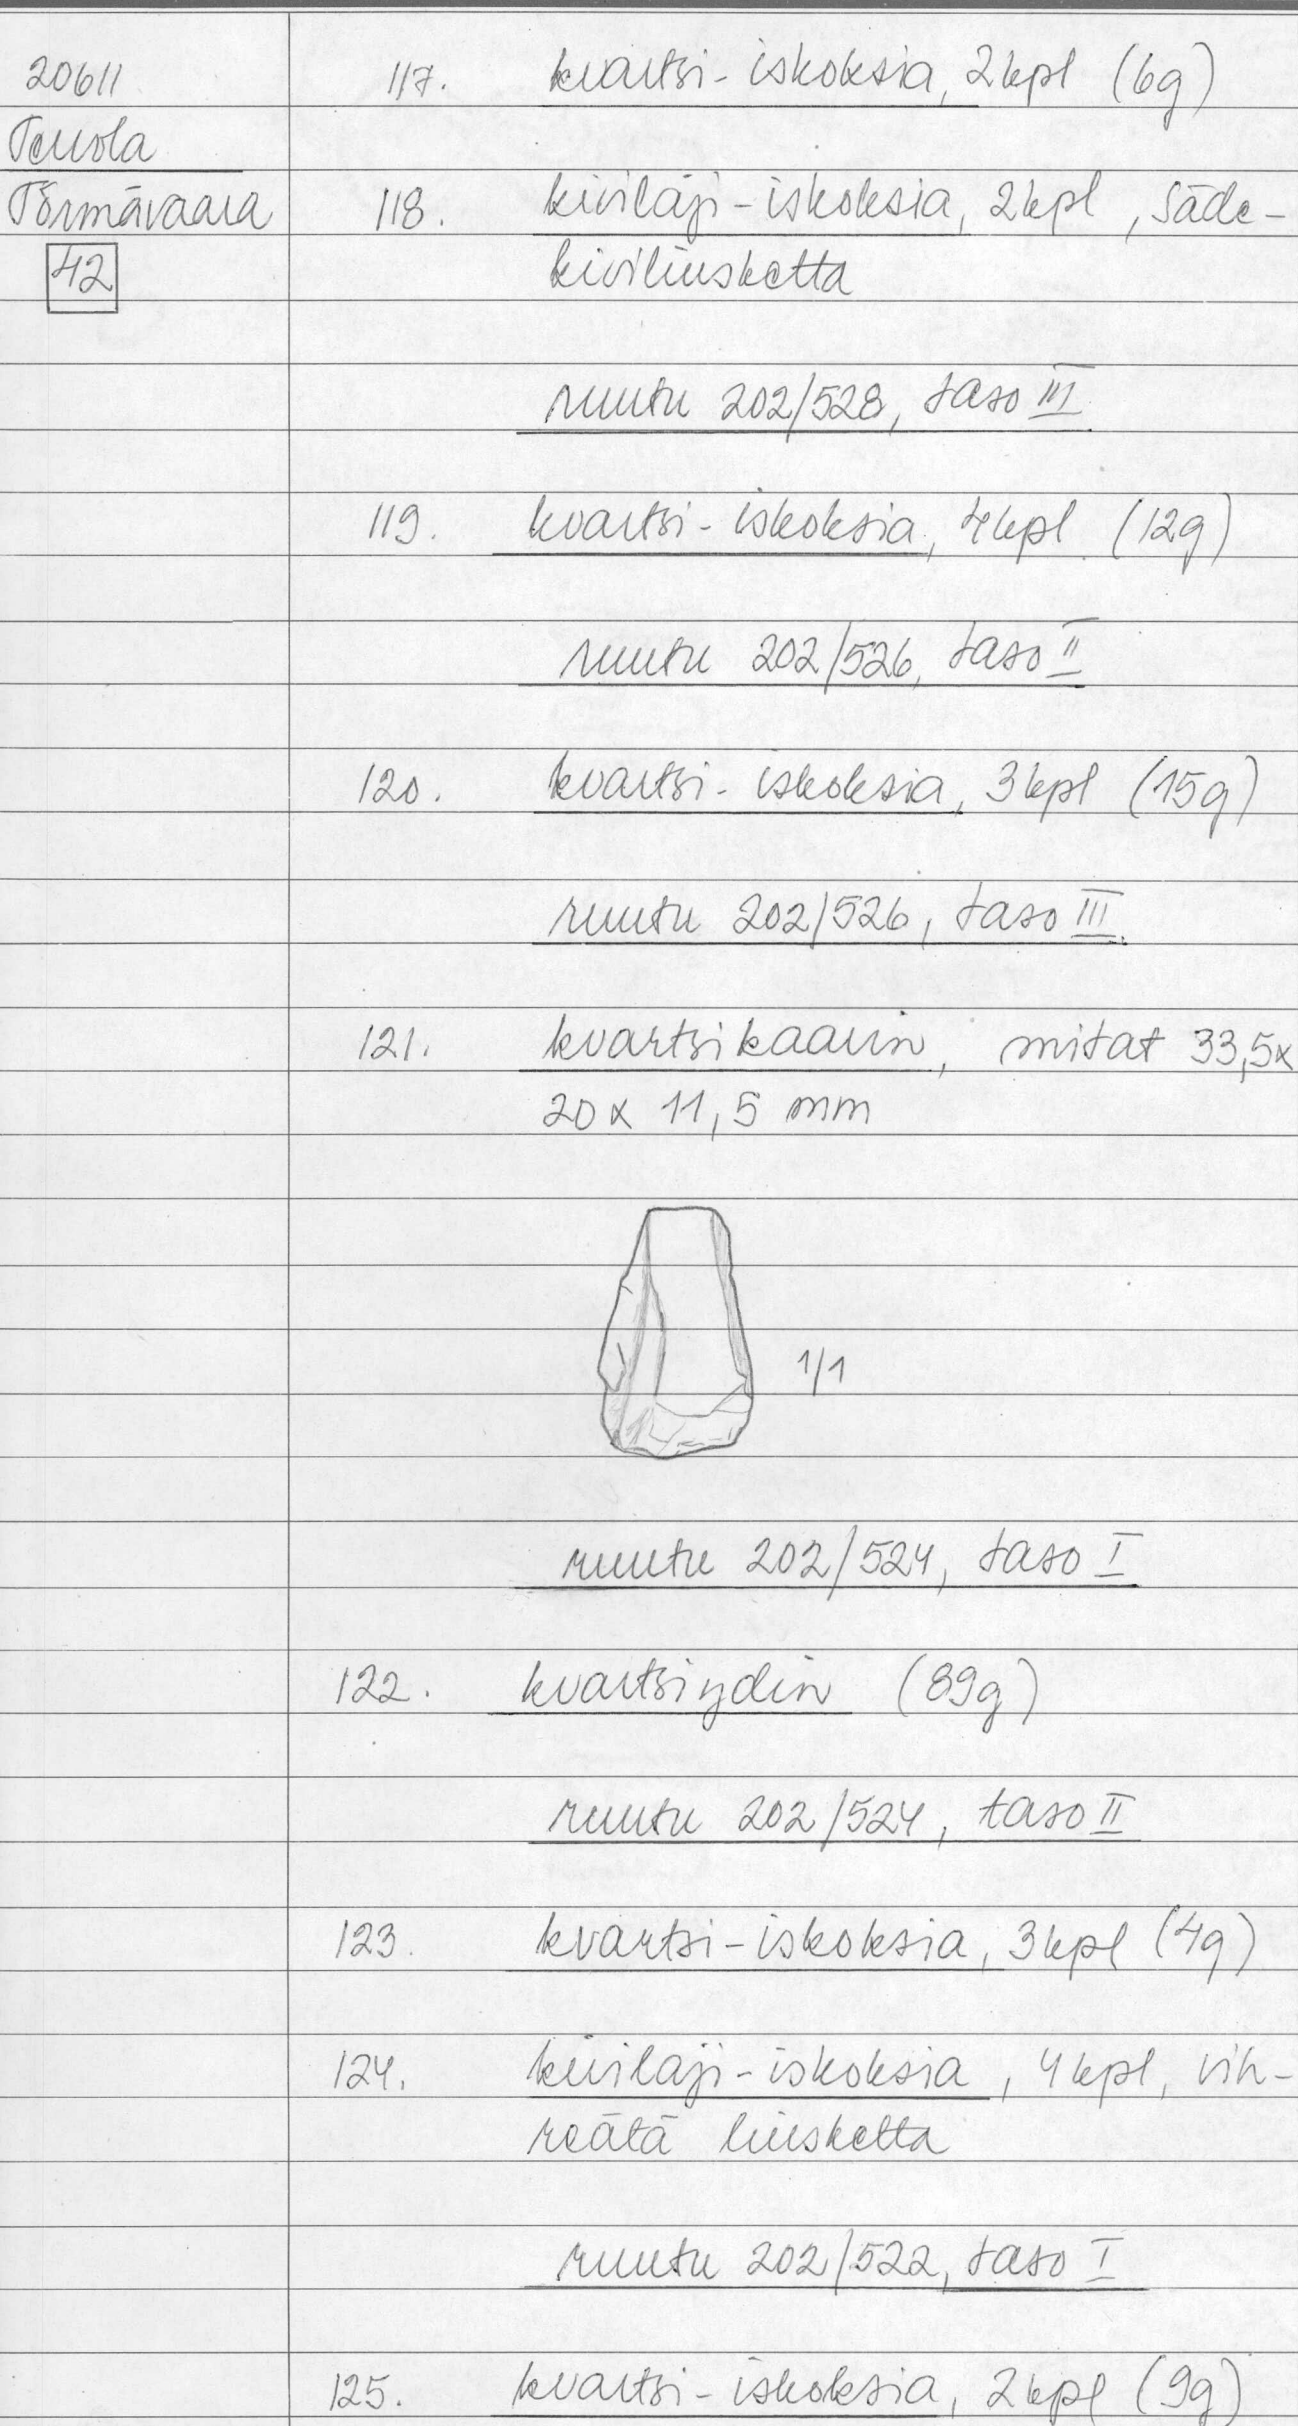 20611
Tervola
Törmävaara
42
117. kvartsi-iskoksia, 2kpl (6g)
118. kivilaji-iskoksia, 2kpl, säde-
kiviliusketta
ruutu 202/528, taso III
119. kvartsi-iskoksia, 4kpl (12g)
ruutu 202/526, taso II
120. kvartsi-iskoksia, 3kpl (15g)
ruutu 202/526, taso III
121. kvartsikaavin, mitat 33,5x
20x 11,5 mm
1/1
ruutu 202/524, taso I
122. kvartsiydin (89g)
ruutu 202/524, taso II
123. kvartsi-iskoksia, 3kpl (4g)
124. kivilaji-iskoksia, 4kpl, vih-
reätä liusketta
ruutu 202/522, taso I
125. kvartsi-iskoksia, 2kpl (9g)